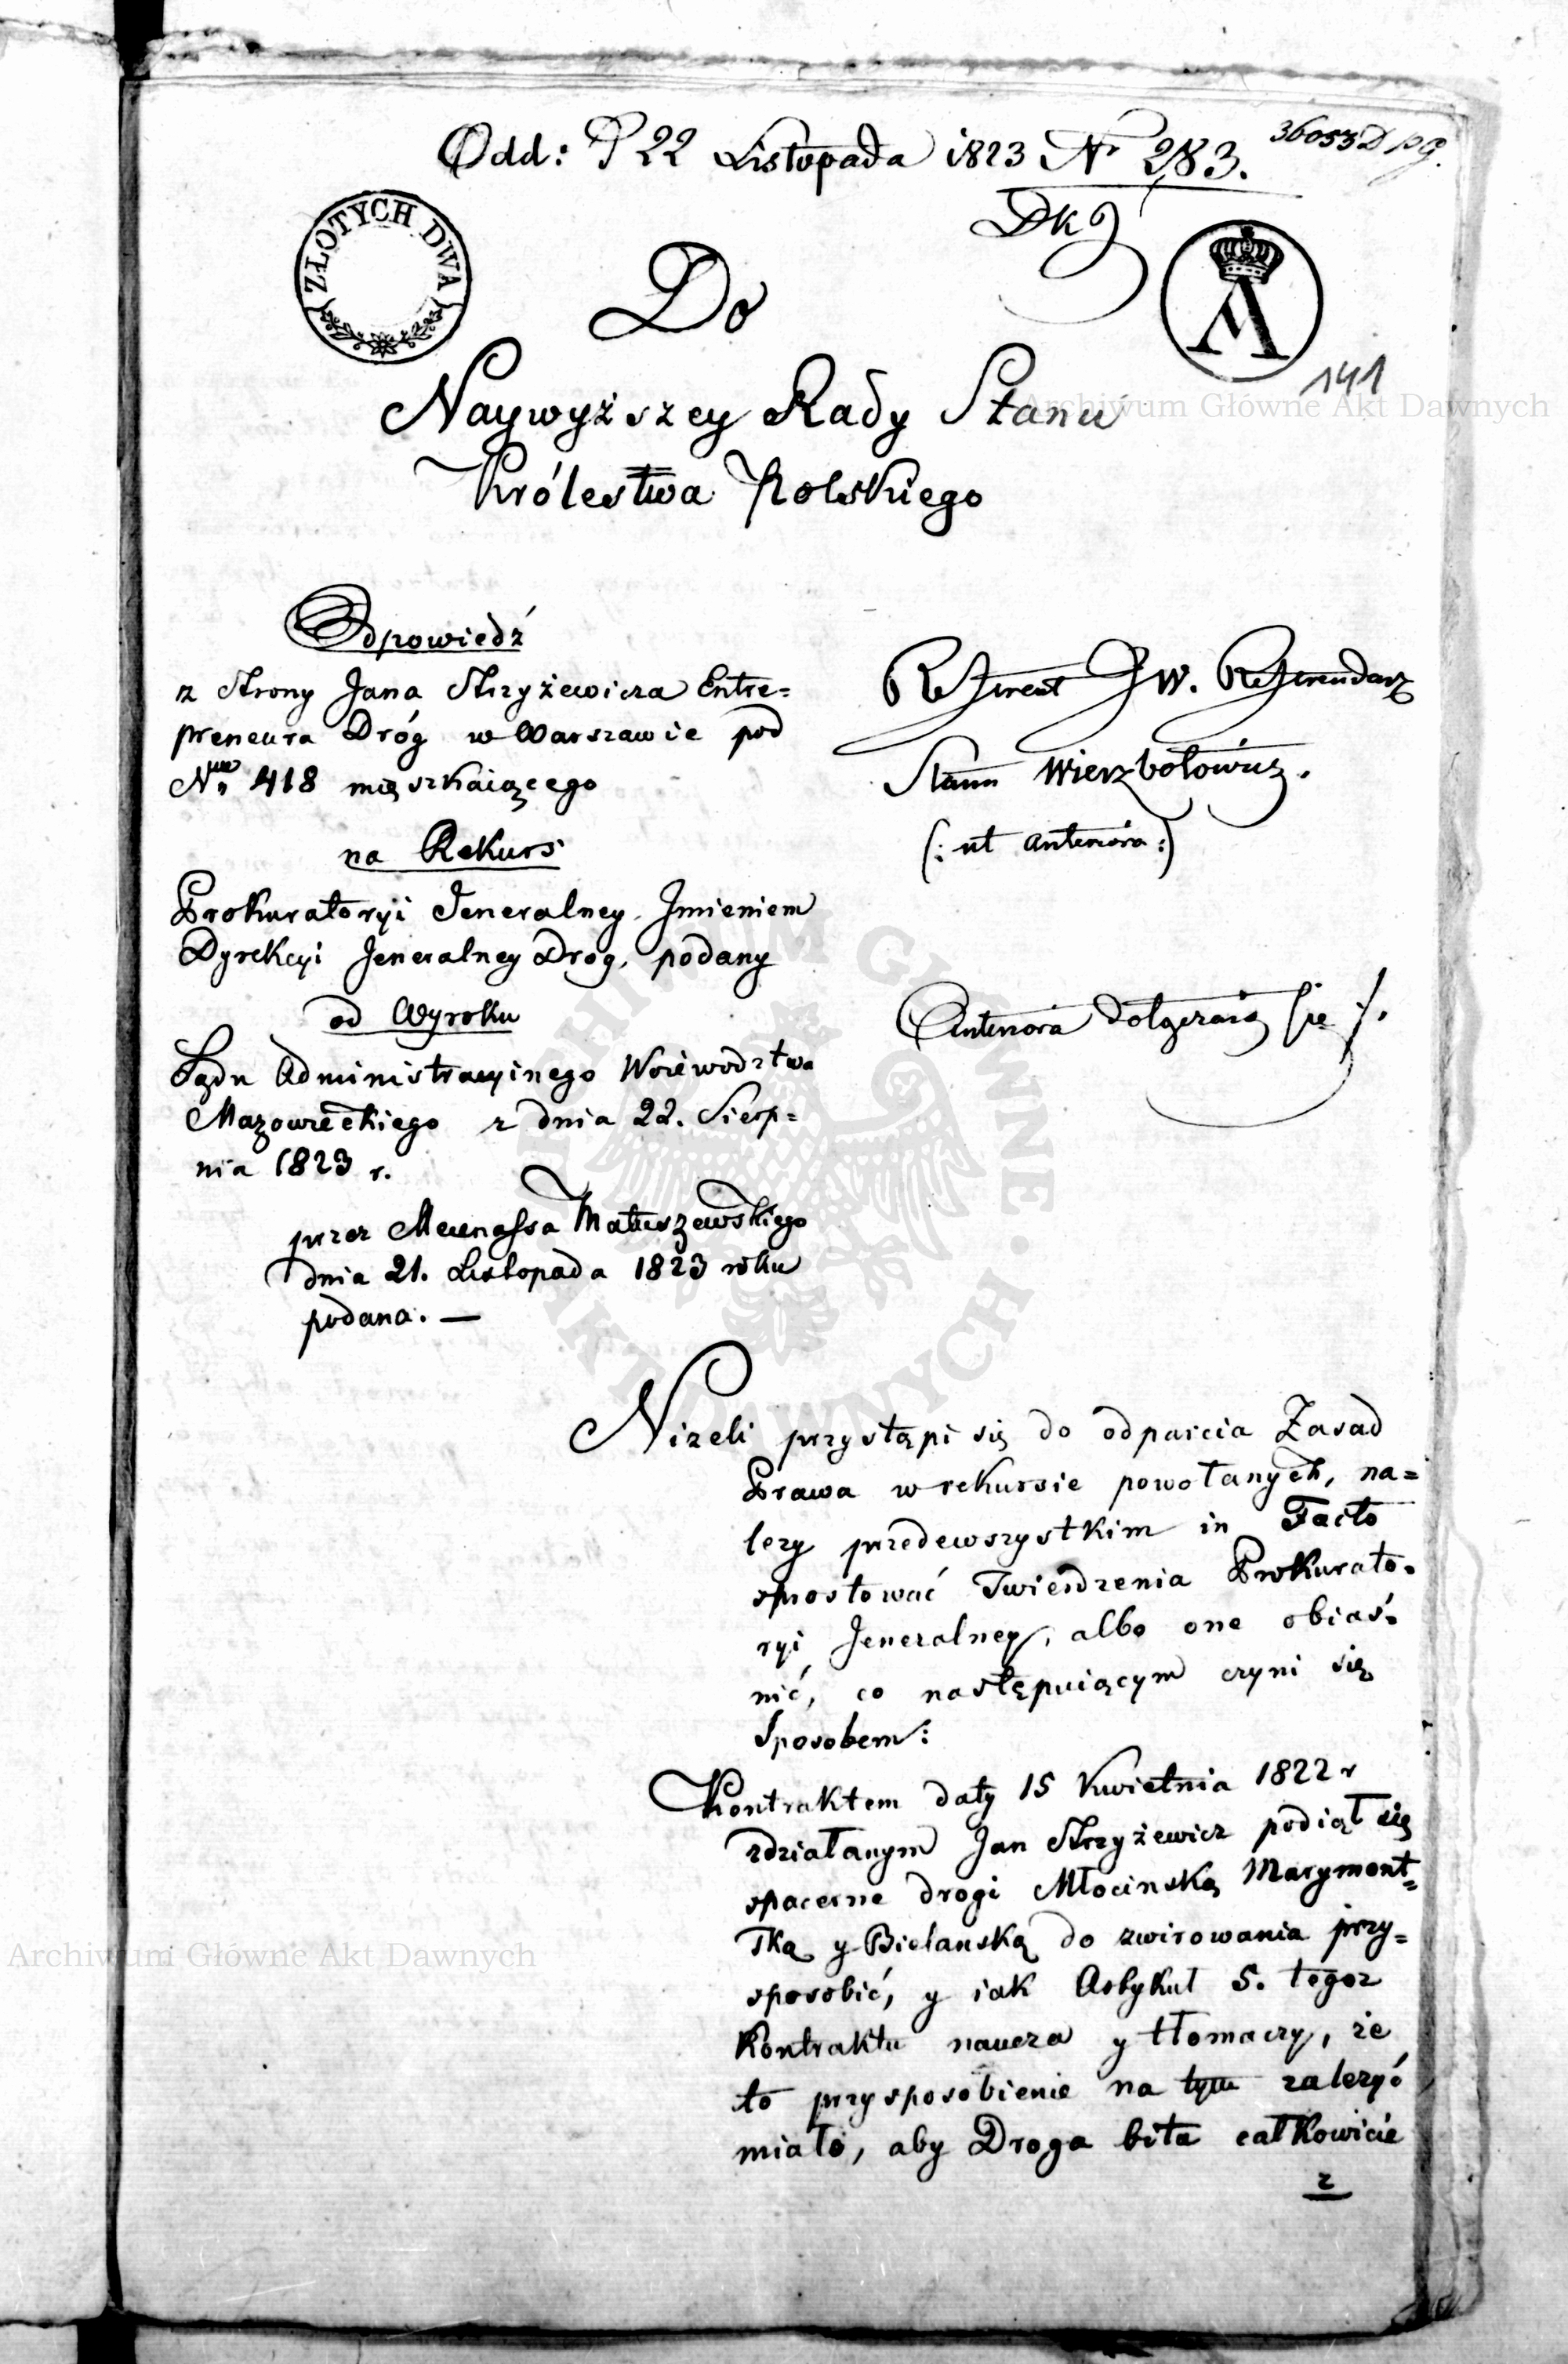 Odd: P 22 Listopada 1823 Nr 283.
36053 D pg.
Dkg
ZŁOTYCH DWA
A
141
Do
Naywyższey Rady Stanu
Królestwa Polskiego
Odpowiedź
z Strony Jana Skrzyżewicza Entre=
preneura Dróg w Warszawie pod
Nrem 418 mieszkaiącego
na Rekurs
Prokuratoryi Jeneralney Jmieniem
Dyrekcyi Jeneralney Drog, podany
od Wyroku
Sądu Administracyinego Woiewodztwa
Mazowieckiego z dnia 22. Sierp=
nia 1823 r.
przez Mecenassa Matuszewskiego
dnia 21. Listopada 1823 roku
podana. —
Referent JW. Referendarz
Stanu Wierzbołowicz.
(: ut anteriora :)
Anteriora dołączaią się
Nizeli przystąpi się do odparcia Zasad
Prawa w rekursie powołanych, na=
lezy przedewszystkim in Facto
sprostować Twierdzenia Prokurato=
ryi Jeneralney, albo one obiaś=
nić, co następuiącym czyni się
Sposobem:
Kontraktem daty 15 Kwietnia 1822 r
zdziałanym Jan Skrzyżewicz podiął się
spacerne drogi Młocinską Marymont=
ską y Bielanską do zwirowania przy=
sposobić, y iak Artykuł 5. tegoz
Kontraktu naucza y tłomaczy, ze
to przysposobienie na tym zalezyć
miało, aby Droga bita całkowicie
z
Archiwum Główne Akt Dawnych
Archiwum Główne Akt Dawnych
ARCHIWUM GŁÓWNE AKT DAWNYCH